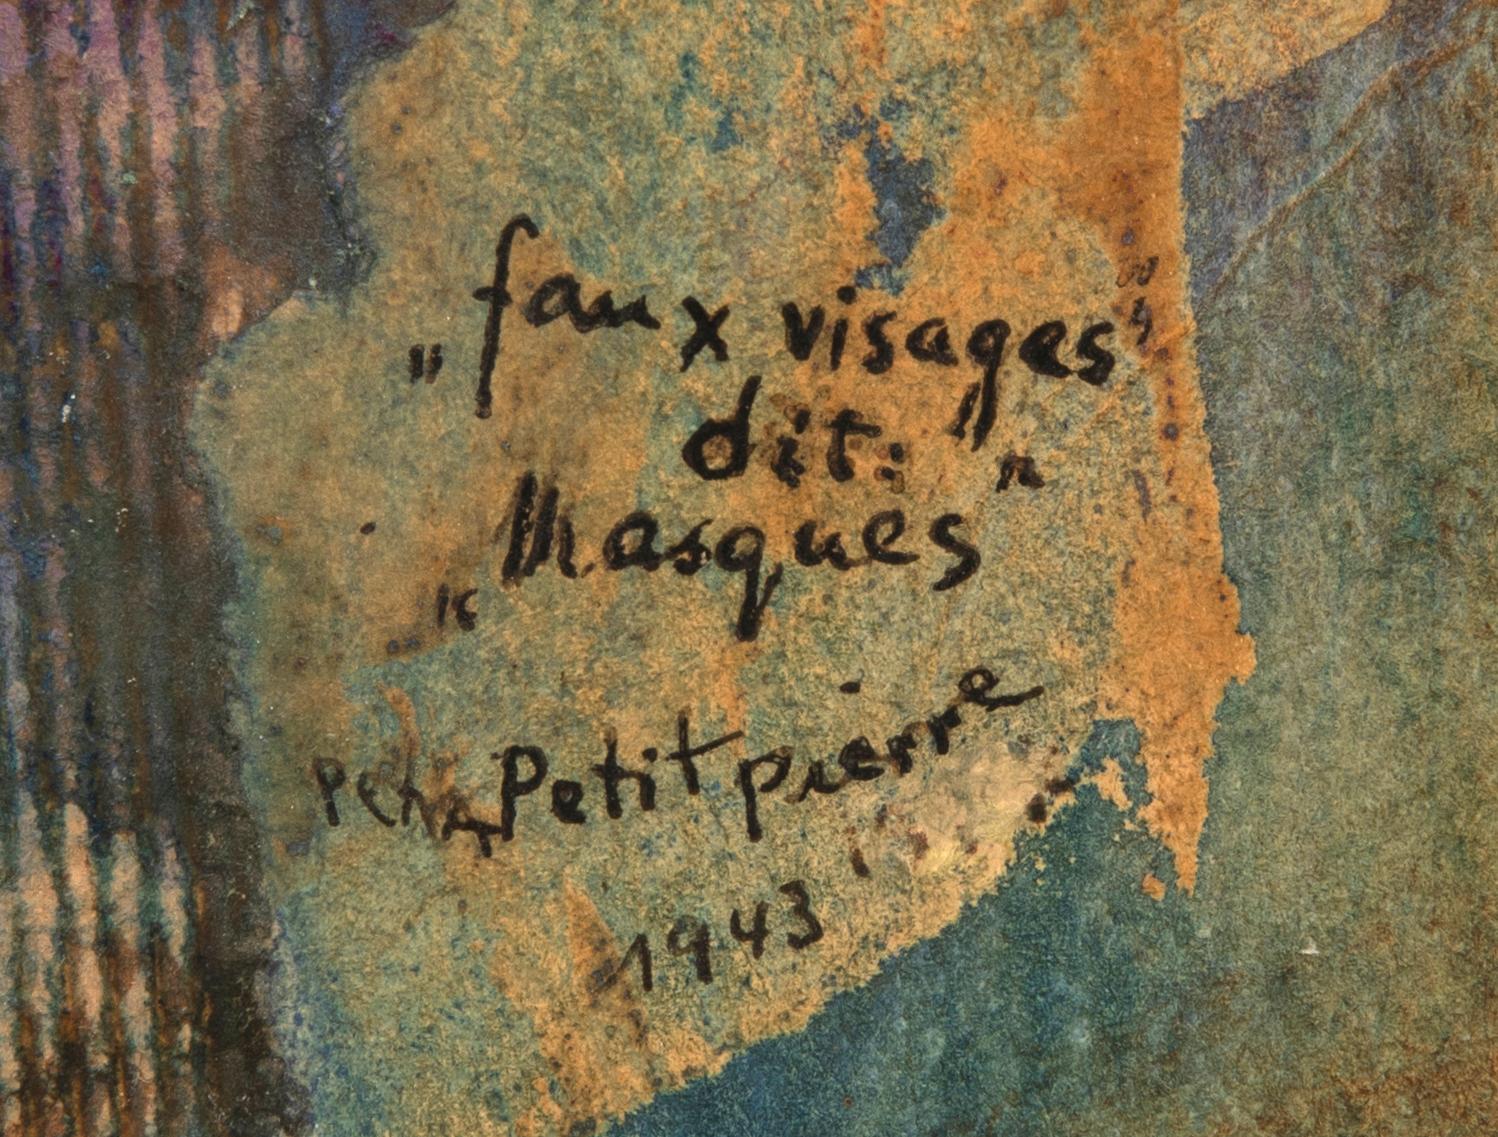 „faux visages"
dit:
„Masques"
Petra Petitpierre
1943